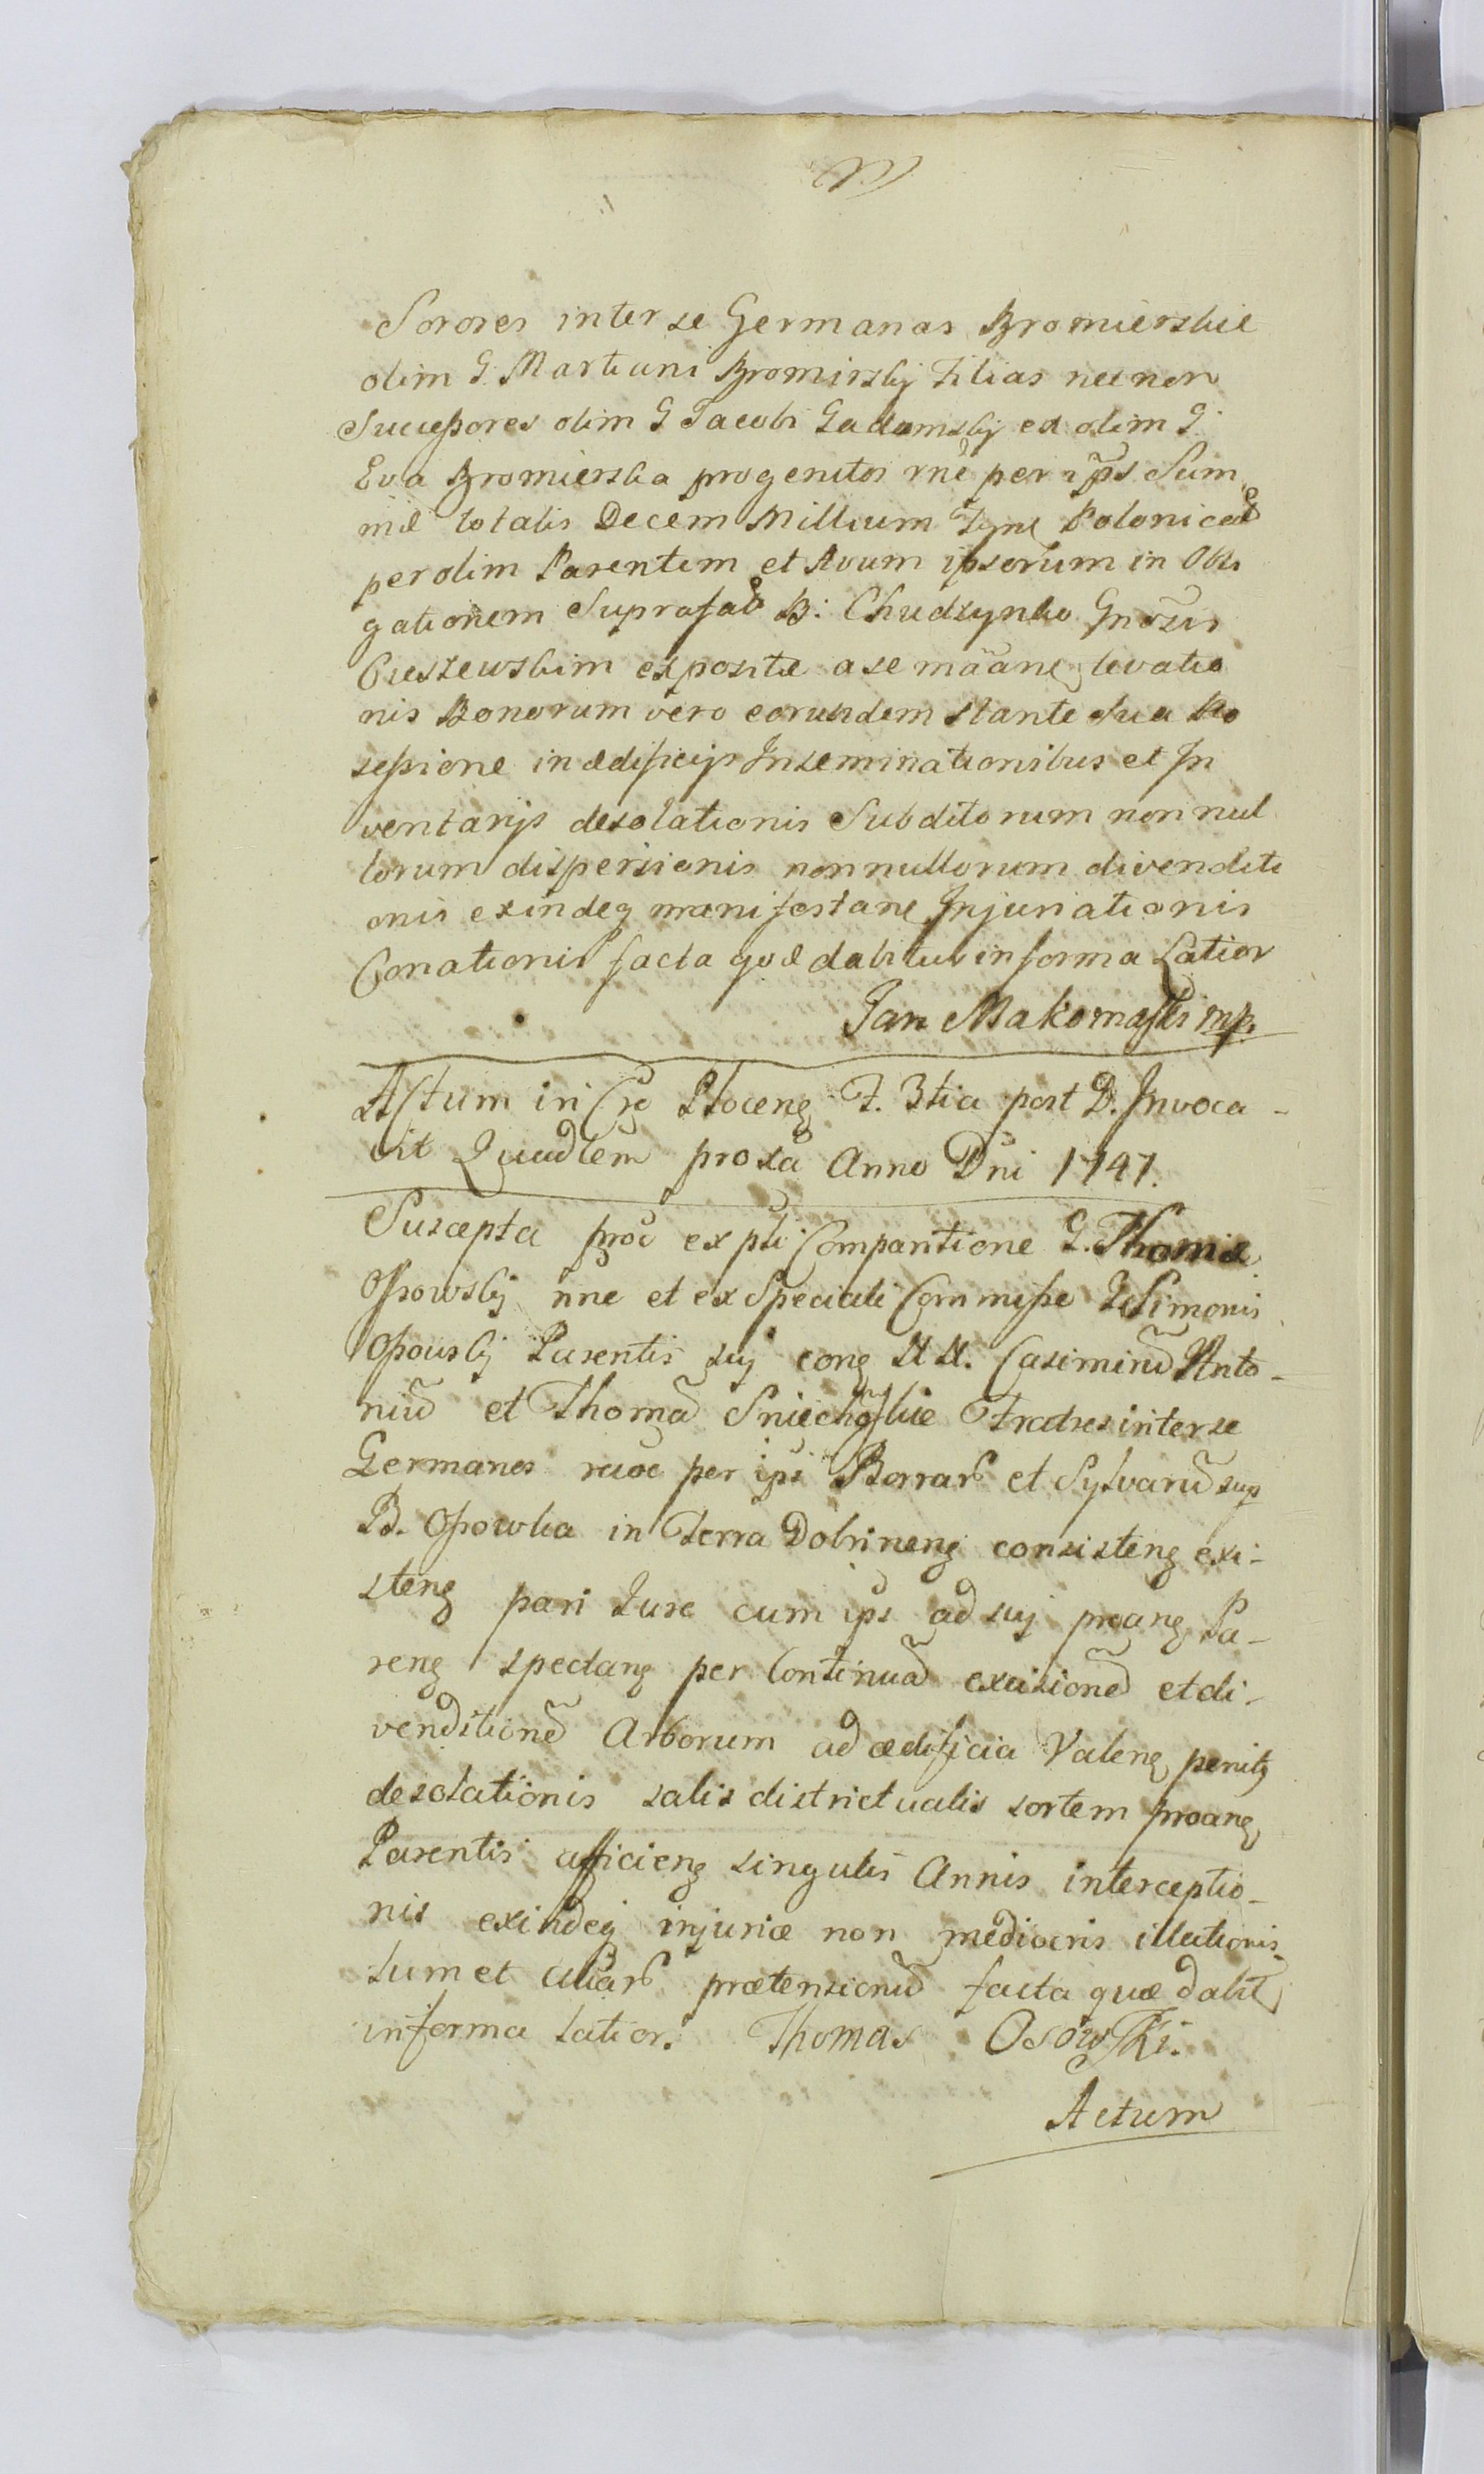 Sorores inter se Germanas Bromierskie
olim G. Martiani Bromirskij Filias necnon
Successores olim G Jacobi Gadomskij ex olim G.
Eva Bromierska progenitos rne per ips Sum
mæ totalis Decem Millium Tyne Polonical
per olim Parentem et Avum ipsorum in Obli
gationem Suprafat B: Chudzynko Gnosis
Cieszewskim expositæ a se maane levatio
nis Bonorum vero eorundem stante sua Po
sessione in ædificijs Inseminationibus et In
ventarijs desolationis Subditorum nonnul
lorum dispersionis nonnullorum divenditi
onis exindeq manifestane Injuriationis
Conationis facta quæ dabitur in forma Latior
Jan Makomaski mp.
Actum in Cro Plocens F. 3tia post D. Invoca-
vit Quadlem proxa Anno Dni 1747.
Suscepta proc ex pti Comparitione G. Thomæ
Ossowskij nne et ex Speciali Commisse G Simonis
Ossowskij Parentis suj cong NN. Casimirum Anto-
nium et Thomam Sniechoskie Fratres inter se
Germanos rnoe per ips Borrar et Sylvarum sup
B. Ossowka in Terra Dobrineng consisteng exi-
steng pari Jure cum ips ad suj proang Pa-
reng spectang per Continuam excisionem et di-
venditionem Arborum ad ædificia Valeng penitq
desolationis salis districtualis sortem proang
Parentis afficieng singulis Annis interceptio-
nis exindeq injuriæ non mediocris illationis
tum et aliar prætensionum facta quæ dabit
in forma latior. Thomas Osowski.
Actum